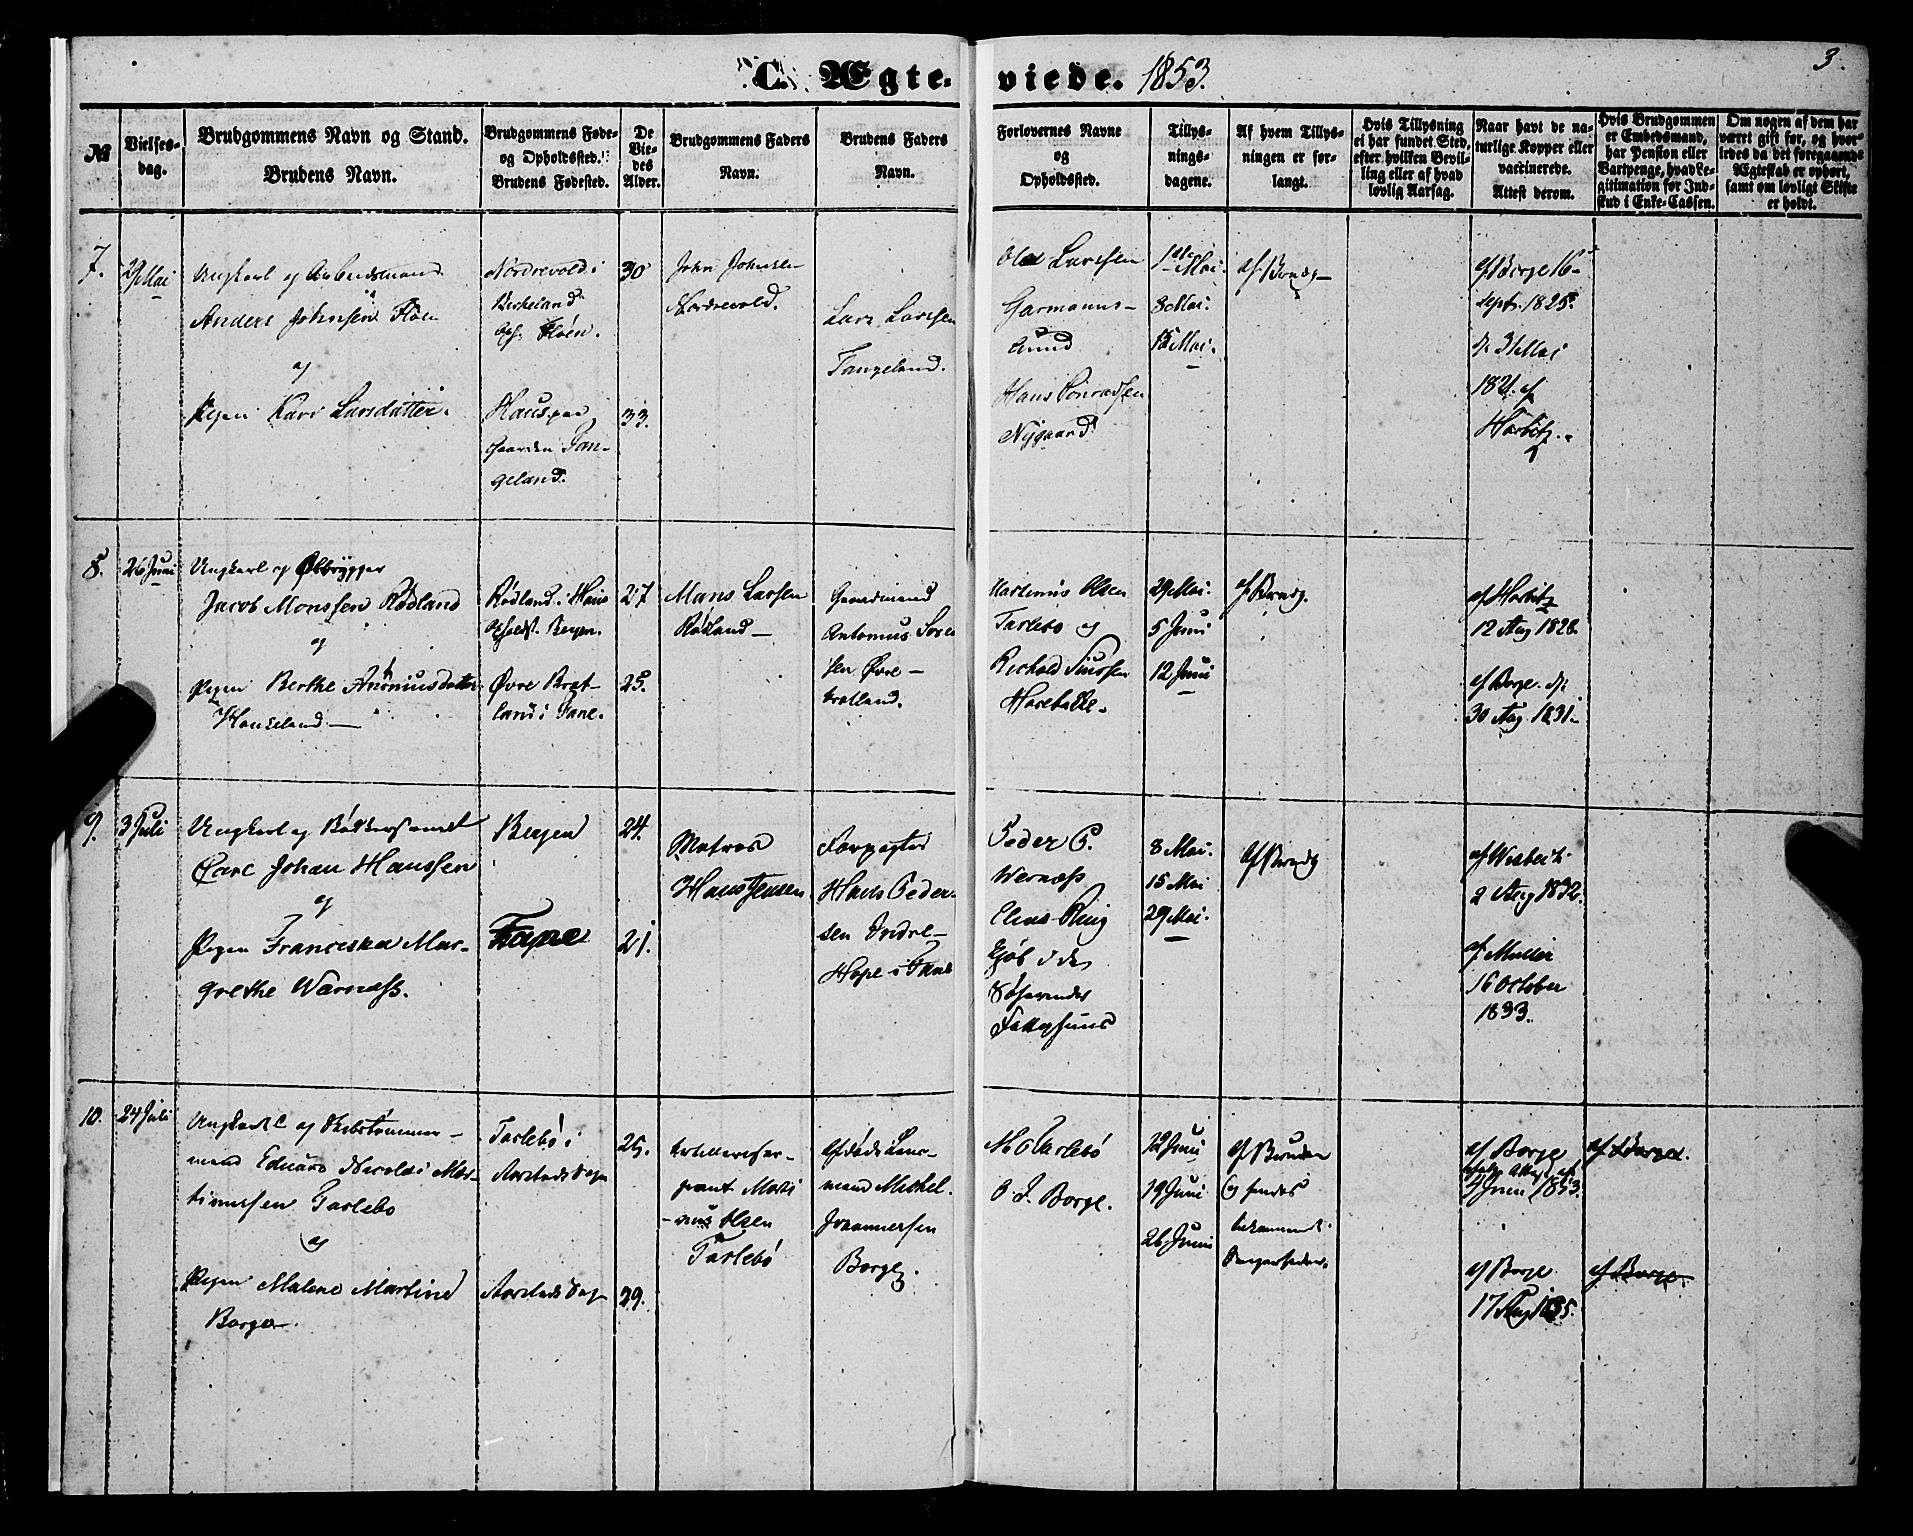 C. Ægte- viede. 1853.
3.
№
Vielses-
dag.
Brudgommens Navn og Stand.
Brudens Navn.
Brudgommens Føde-
og Opholdssted.
Brudens Fødested.
De
Vie-
des
Alder.
Brudgommens Faders
Navn.
Brudens Faders
Navn.
Forlovernes Navne
og
Opholdssted.
Tillys-
nings-
dagene.
Af hvem Tillys-
ningen er for-
langt.
Hvis Tillysning
ei har fundet Sted,
efter hvilken Bevil-
ling eller af hvad
lovlig Aarsag.
Naar havt de na-
turlige Kopper eller
vaccinerede.
Attest derom.
Hvis Brudgommen
er Embedsmand,
har Pension eller
Vartpenge, hvad Le-
gitimation for Ind-
skud i Enke-Cassen.
Om nogen af dem har
været gift før, og hvor-
ledes da det foregaaende
Ægteskab er ophørt,
samt om lovligt Skifte
er holdt.
7.
29 Mai
Ungkarl og Arbeidsmand
Anders Johnsen Floen
og
Pigen Kari Larsdatter.
Nordrevold i
Birkeland
Floen.
Haus paa
Gaarden Tan-
geland.
30
33.
John Johnsen
Nordrevold.
Lars Larssen
Tangeland.
Ole Larssen
Garmanns-
lund
Hans Conradsen
Nygaard
1ste Mai
8 Mai.
15 Mai.
af Brudg
af Børge 16
Sept. 1825.
31 Mai
1821. af
Harbitz.
8.
26 Juni
Ungkarl og Ølbrygger
Jacob Monssen Rødland
og
Pigen Berthe Antoniusdatter
Haugeland
Rødland i Haus
Opholdst. Bergen.
Øvre Brat-
land i Fane.
27
25.
Mons Larsen
Rødland
Gaardmand
Antonius
sen Øvre
bratland.
Martinus Olsen
Tarlebø og
29 Mai.
5 Juni
12 Juni
af Brudg.
af Harbitz
12 Aug 1828.
af Børge d.
30 Aug 1831.
9.
3 Juli
Ungkarl og Bødkersvend
Carl Johan Hanssen
og
Pigen Franciska Mar-
grethe Wernæss.
Bergen
Fane
24.
21.
Matros
Hans Jensen
Forpagter
Hans Peder-
sen Indre-
Hope i Fane
Peder P.
Wernæss
Elias Ring
8 Mai.
15 Mai
29 Mai.
af Brudg
af Wisbech
2 Aug 1832.
af Müller
16 October
1833.
10.
24 Juli
Ungkarl og Skibstømmer-
mand Eduard Nicolai Mar-
tinussen Tarlebø
og
Pigen Malene Martine
Borge.
Tarlebø i
Aarstads Sogn
Aarstads Sogn
25.
29.
Artilleriser-
gant Marti
nus Olsen
Tarlebø
Afdøde Lens-
mand Mickel
Johannessen
Borge.
M O Tarlebø
O J. Borge.
12 Juni
19 Juni
26 Juni
af Bruden
og hendes
bekiendt
af Borge
4 Juni 1853.
af Borge
17 Aug 1835.
af Borge.
af Borge.